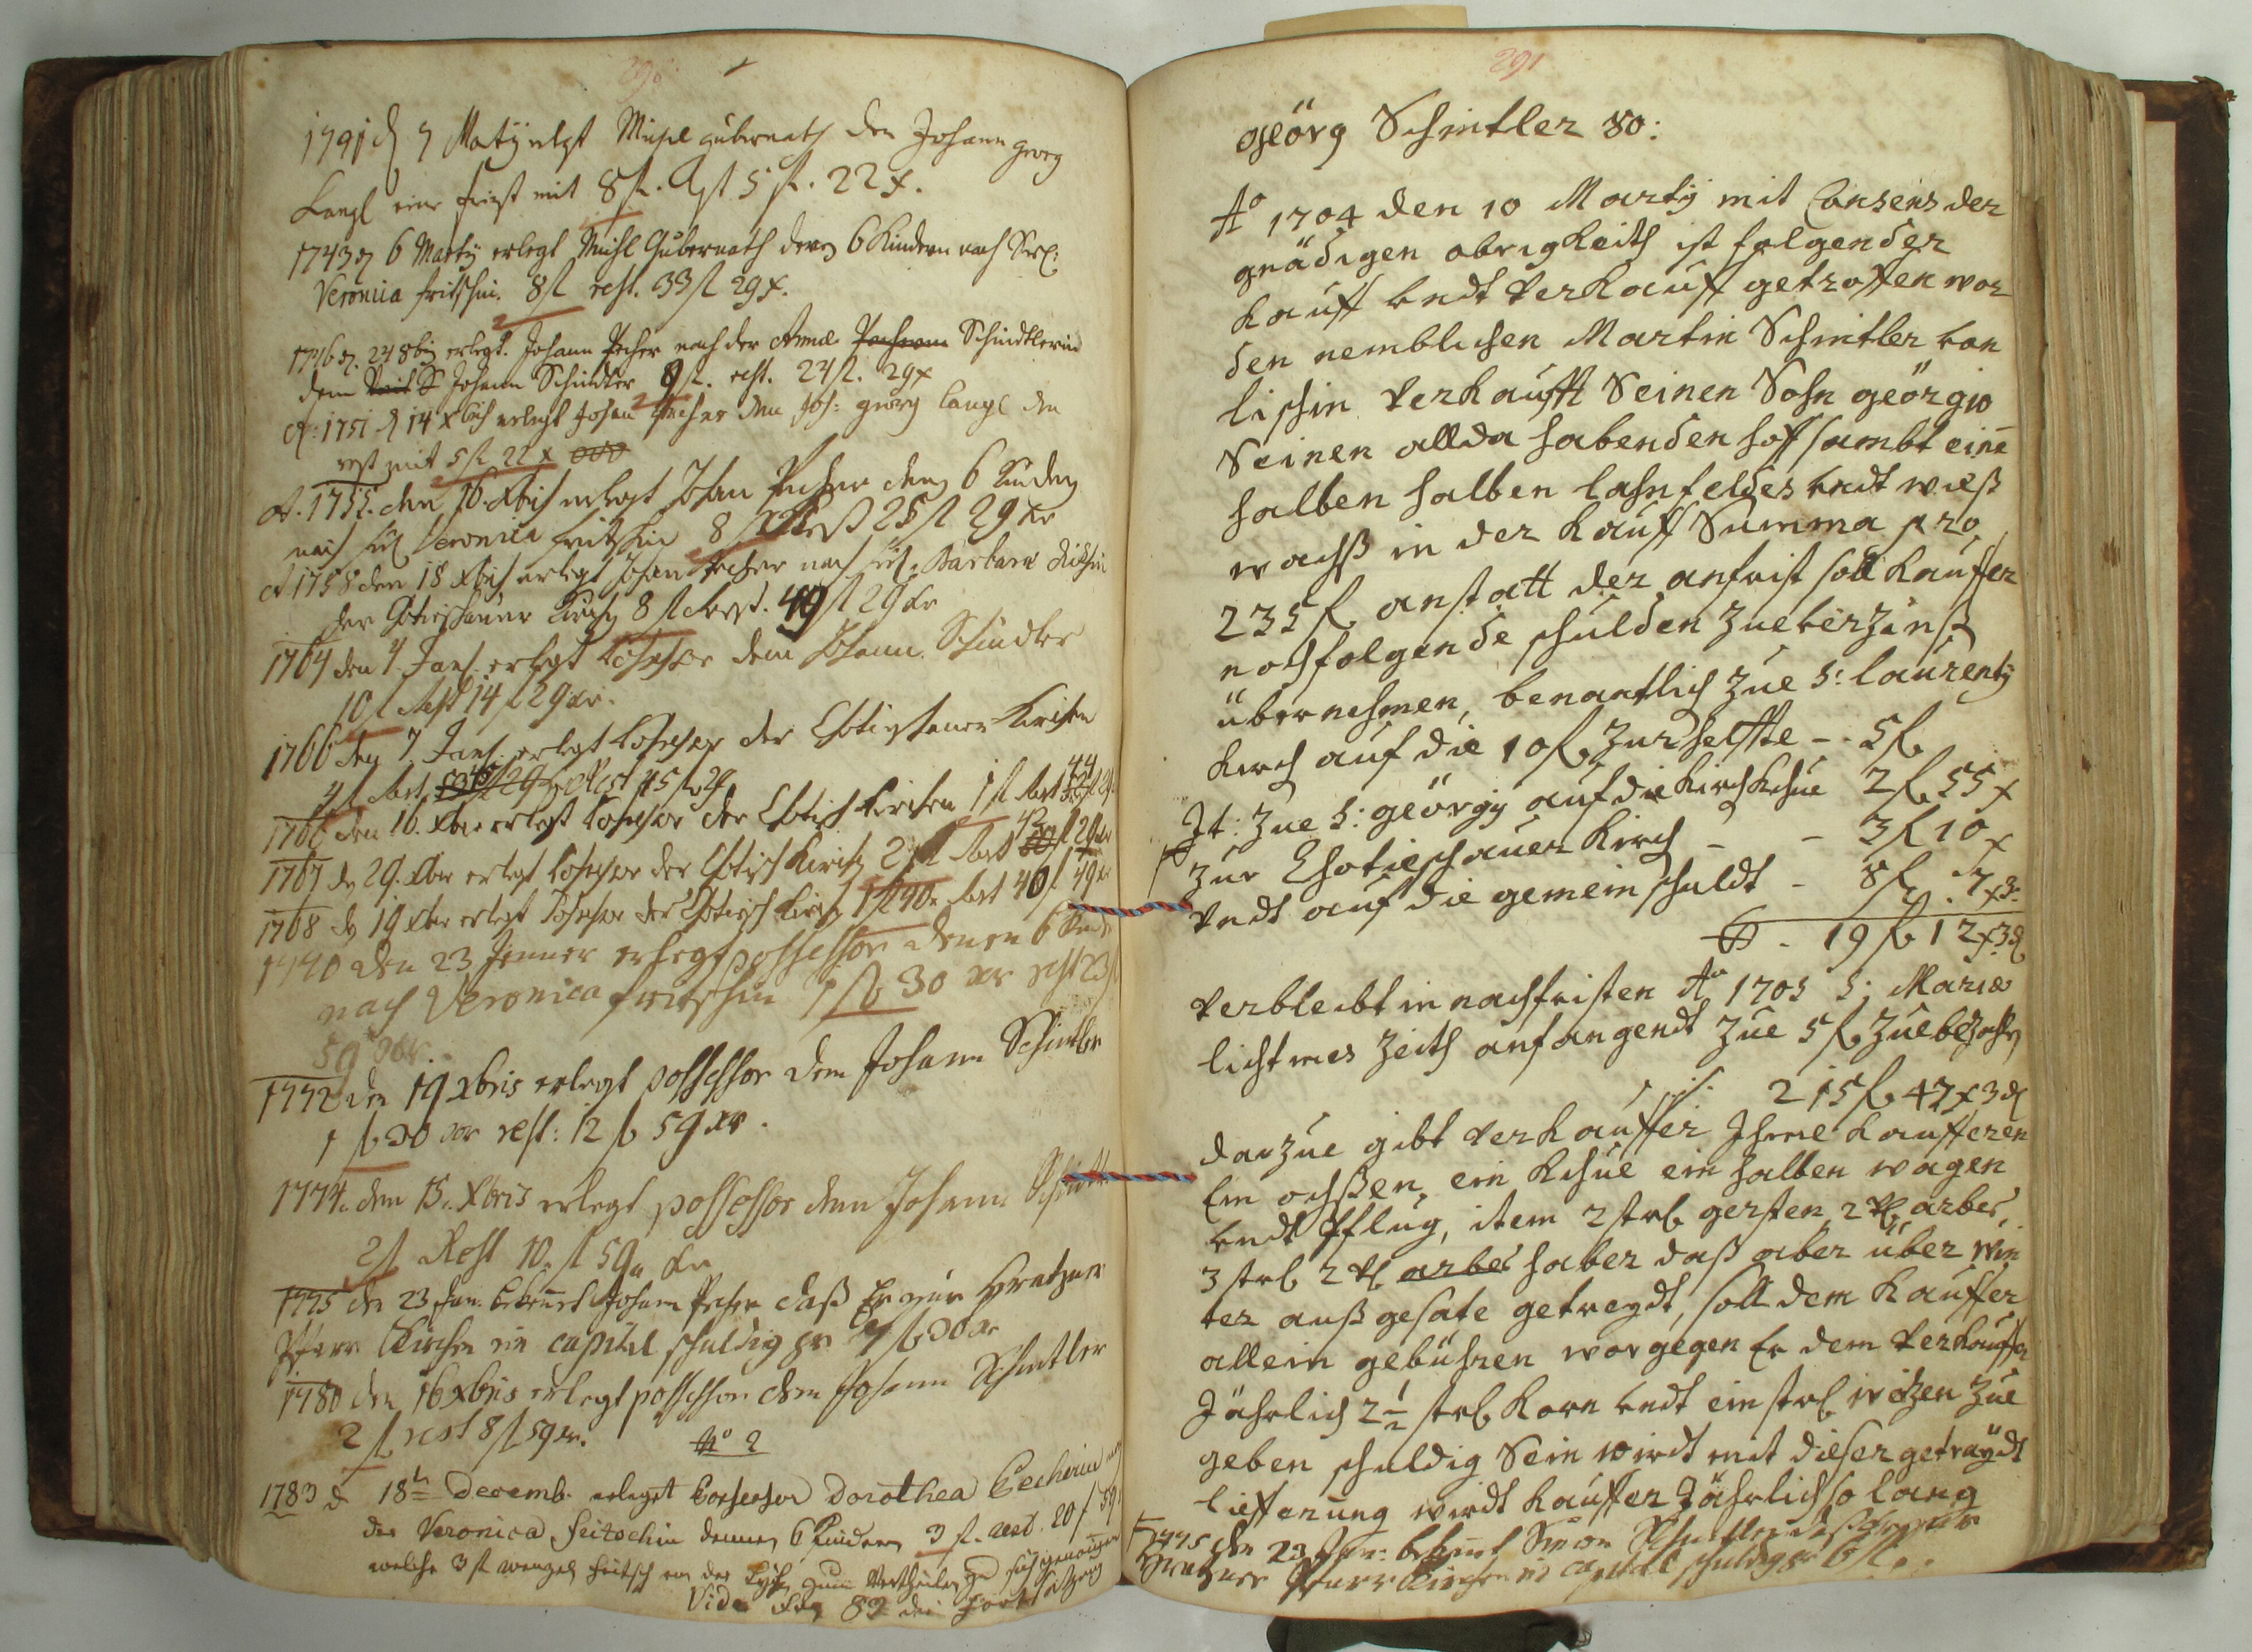 290
1741 d 7 Martÿ erlegt Michl Gubernath den Johann Georg
Langl eine frist mit 8 fl. Rest 5 fl. 22 x.
1743 d 6 Martÿ erlegt Michl Gubernath denen 6 Kindern nach Seel:
Veronica fritschin. 8 fl rest. 33 fl 29 x.
24 8bris erlegt Johann Pecher nach der Anna Schindlerin
dem Johann Schindler 9 fl. rest. 24 fl. 29 x
A: 1751 d 14 Xbris erlegt Johan Pecher dem Joh: georg Langl den
rest mit 5 fl 22 x
A. 1755. den 16. Xbris erlegt Johan Pecher denen 6 Kindern
nach Seel Veronica fritschin 8 fl Rest 25 fl 29 xr
A 1758 den 18 Xbris erlegt Johan Pecher nach Seel. Barbara
der Chotieschauer Kirch 8 fl Rest. 49 fl 29 xr
1764 den 4. Jan. erlegt Possessor dem Johann Schindler
10 fl Rest 14 fl 29 xr.
1766 den 7. Jan. erlegt Possessor der Chotieschauer Kirchen
4 fl Rest 45 fl 29
1766 den 16. Xber erlegt Possessor der Chotiesch Kirchen 1 fl Rest 44 fl 29
1767 d 29. Xber erlegt Possessor der Chotiesch Kirch 2 fl Rest 42 fl 29 xr
1768 d 19 Xber erlegt Possessor der Chotiesch Kirch 1 fl 40 x Rest 40 fl 49 xr
1770 den 23 Jenner erlegt possessor denen 6 Kinder
nach Veronica fritschin 1 fl 30 xr rest 23 fl
59 xr
1772 den 19 Xbris erlegt possessor dem Johann Schintler
1 fl 30 xr rest: 12 fl 59 xr.
1774. den 15. Xbris erlegt possessor dem Johann Schintler
2 fl Rest 10. fl 59 xr
1775 den 23 Jan. bekennt Johann Pecher daß Er zur
Pfarr Kirchen ein capital schuldig pr 7 fl 30 xr
1780 den 16 Xbris erlegt possessor dem Johann Schintler
2 fl rest 8 fl 59 xr.
No 2
1783 d 18ten Decemb. erleget Possessor Dorothea Pecherin
der Veronica Feitschin dennen 6 Kinder 3 fl. rest. 20 f 59
welche 3 fl wenzel feitsch von der zum Vertheilen zu sich genommen
Vide Fol. 82 die Fortsetzung
291
Geörg Schintler 80:
Ao 1704 den 10 Martÿ mit Consens der
gnädigen obrigkeith ist folgender
Kauff vndt Verkauff getroffen wor
den nemblichen Martin Schintler von
lischin Verkaufft Seinen Sohn geörgio
Seinen allda habenden hoff sambt eine
halben halben lahn feldes vndt wieß
wachß in der Kauff Summa pro
235 fl. anstatt der anfrist soll Kauffer
nochfolgende schulden zue verzünß
übernehmen, benantlich zue S: Laurentÿ
Kirch auf die 10 fl. zur helffte - 5 fl.
It: zue S: geörgÿ auf die Kirch Kchue 2 fl. 55 x
zur Chotieschauer Kirch - - 3 fl 10 x
Vndt auf die gemein schuldt - 8 fl. 7 x 3
19 fl. 12 x 3 d
Verbleibt in nachfristen Ao 1705 S: Mariæ
lichtmes Zeith anfangendt zue 5 fl. zue bezahlen
215 fl. 47 x 3 d
darzue gibt Verkauffer Ihme Kaufferen
Ein ochßen, ein Kchue ein halben wagen
vndt Pflug, item 2 strl. gersten 2 Vl. arbes,
3 strl. 2 Vl arbes haber daß aber über win
ter außgesate getreydt, soll dem Kauffer
allein gebühren worgegen Er dem Verkauffer
Jährlich 2 1/2 strl. Korn vndt ein strl. weizen zue
geben schuldig Sein wirdt mit dieser getraÿdt
liefferung wirdt Kauffer Jährlich so lang
1775 den 23 Jan: bekennt Simon Schintler daß er zur
Pfarr Kirchen ein capital schuldig pr 6 fl.